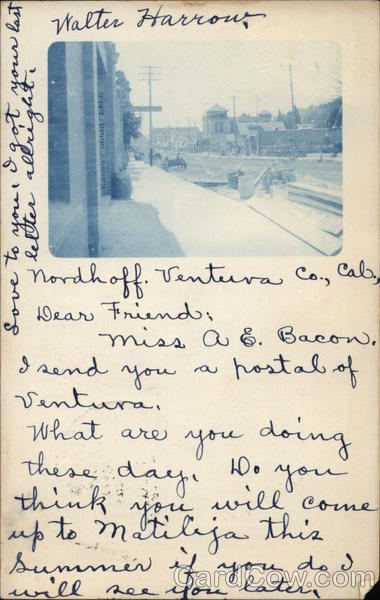 Walter Harrow.
Love to you, I got your last
letter allright.
Nordhoff. Ventura Co., Cal.,
Dear Friend;
Miss A E. Bacon.
I send you a postal of
Ventura.
What are you doing
these day. Do you
think you will come
up to Matilija this
Summer if you do I
will see you later.
CardCow.com